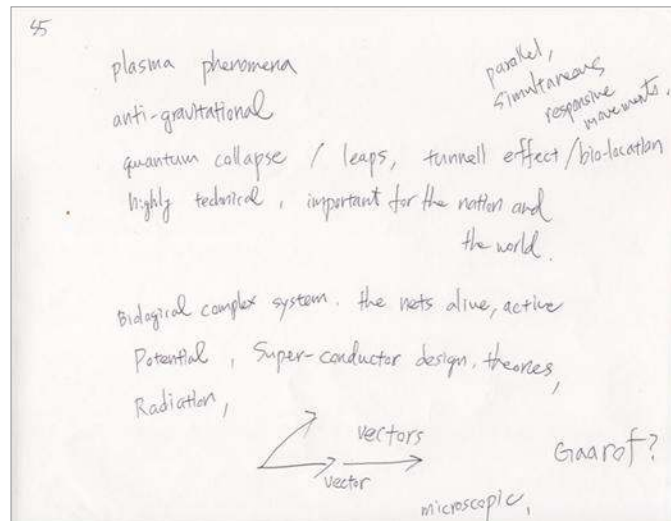 45
plasma phenomena
parallel,
simultaneous
responsive
movements,
anti-gravitational
quantum collapse / leaps, tunnell effect / bio-location
highly technical, important for the nation and
the world.
Biological complex system. the nets alive, active
Potential, Super-conductor design, theories,
Radiation,
vectors
vector
Gaarof?
microscopic,